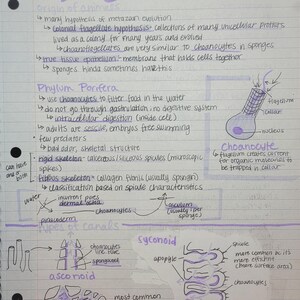 Origin of animals
↳ many hypothesis of metazoan evolution
↳ colonial flagellate hypothesis: collections of many unicellular protists
lived as a colony for many years and evolved
↳ choanoflagellates are very similar to choanocytes in sponges
↳ true tissue epithelium: membrane that holds cells together
↳ sponges
Phylum Porifera
↳ use choanocytes to filter food in the water
↳ do not go through gastrulation, no digestive system
↳ intracellular digestion (inside cell)
↳ adults are sessile, embryos free swimming
↳ few predators
↳ bad odor, skeletal structure
↳ rigid skeleton: calcareous/siliceous spicules (microscopic
spikes)
↳ fibrous skeleton: collagen fibrils (usually spongin)
↳ classification based on spicule characteristics
can have
both
flagellum
collar
nucleus
Choanocyte
flagellum creates current
for organic materials to
be trapped in collar
water
incurrent pores
dermal ostia
pinacoderm
choanocytes
osculum
Types of canals
asconoid
choanocytes
spongocoel
syconoid
apopyle
spicule
more efficient
choanocytes
most common